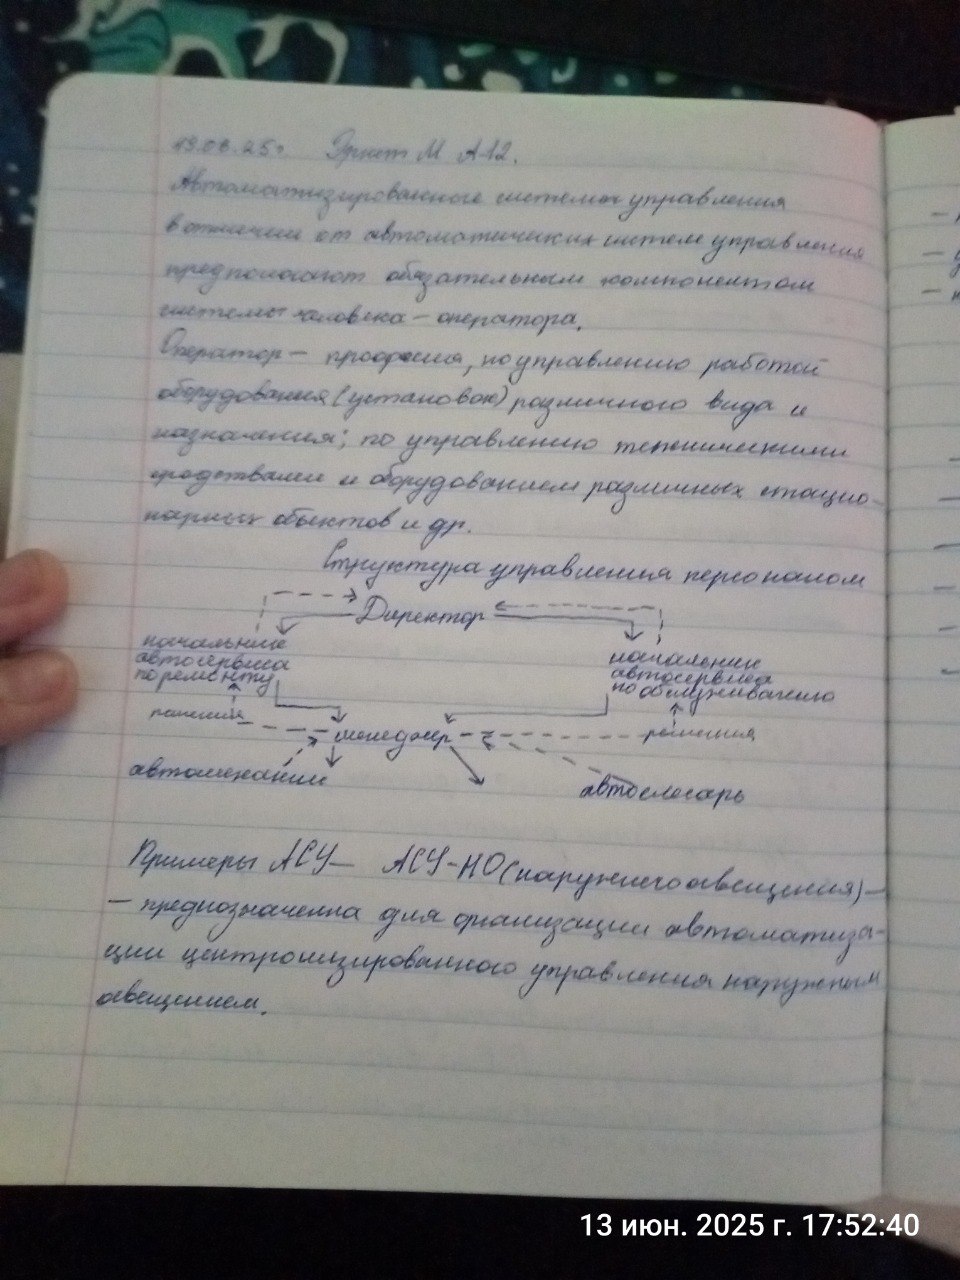 13.06.25г. Эрнст М А-12.
Автоматизированные системы управления
в отличии от автоматических систем управления
предпологают обязательным компонентом
системы человека – оператора.
Оператор – профессия, по управлению работой
оборудования (установок) различного вида и
назначения; по управлению техническими
средствами и оборудованием различных стацио-
нарных объектов и др.
Структура управления персоналом
Директор
начальник
автосервиса
по ремонту
начальник
автосервиса
по обслуживанию
решения
менеджер
решения
автомеханик
автослесарь
Примеры АСУ – АСУ-НО (наружного освещения) –
– предназначенна для организации автоматиза-
ции центролизированного управления наружным
освещением.
–
–
–
13 июн. 2025 г. 17:52:40